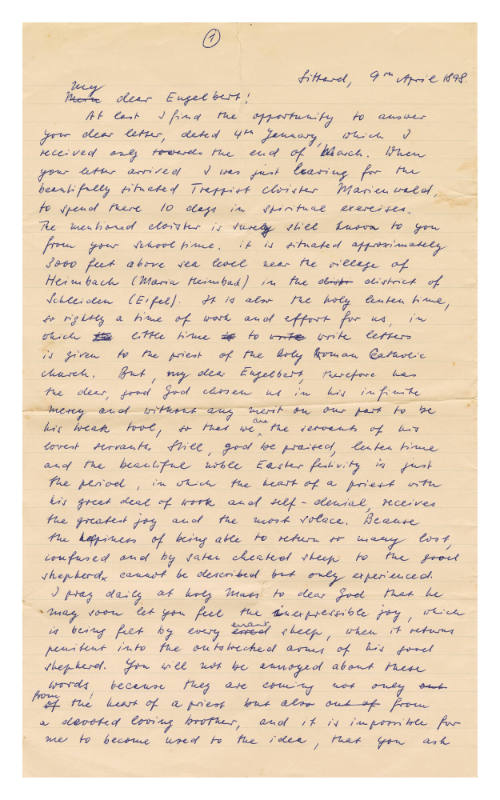 1
Sittard, 9th April 1898
My
Mein dear Engelbert!
At last I find the opportunity to answer
your dear letter, dated 4th January, which I
received only towards the end of March. When
your letter arrived I was just leaving for the
beautifully situated Trappist cloister Marienwald,
to spend there 10 days in spiritual exercises.
The mentioned cloister is surely still known to you
from your schooltime. it is situated approximately
3000 feet above sea level near the village of
Heimbach (Maria Heimbach) in the distr district of
Schleiden (Eifel). It is also the holy lenten time,
so rightly a time of work and effort for us, in
which little time is to write write letters
is given to the priest of the holy Roman Catholic
church. But, my dear Engelbert, therefore has
the dear, good God chosen us in his infinite
mercy and without any merit on our part to be
his weak tool, so that we are the servants of his
lovest servants. Still, god be praised, lenten time
and the beautiful noble Easter festivity is just
the period, in which the heart of a priest with
his great deal of work and self-denial, receives
the greatest joy and the most solace. Because
the happiness of being able to return so many lost,
confused and by satan cheated sheep to the good
shepherd, cannot be described but only experienced.
I pray daily at holy Mass to dear God that he
may soon let you feel the inexpressible joy, which
is being felt by every errant sheep, when it returns
penitent into the outstreched arms of his good
shepherd. You will not be annoyed about these
words, because they are coming not only out
from
of the heart of a priest but also out of from
a devoted loving brother, and it is impossible for
me to become used to the idea, that you ask